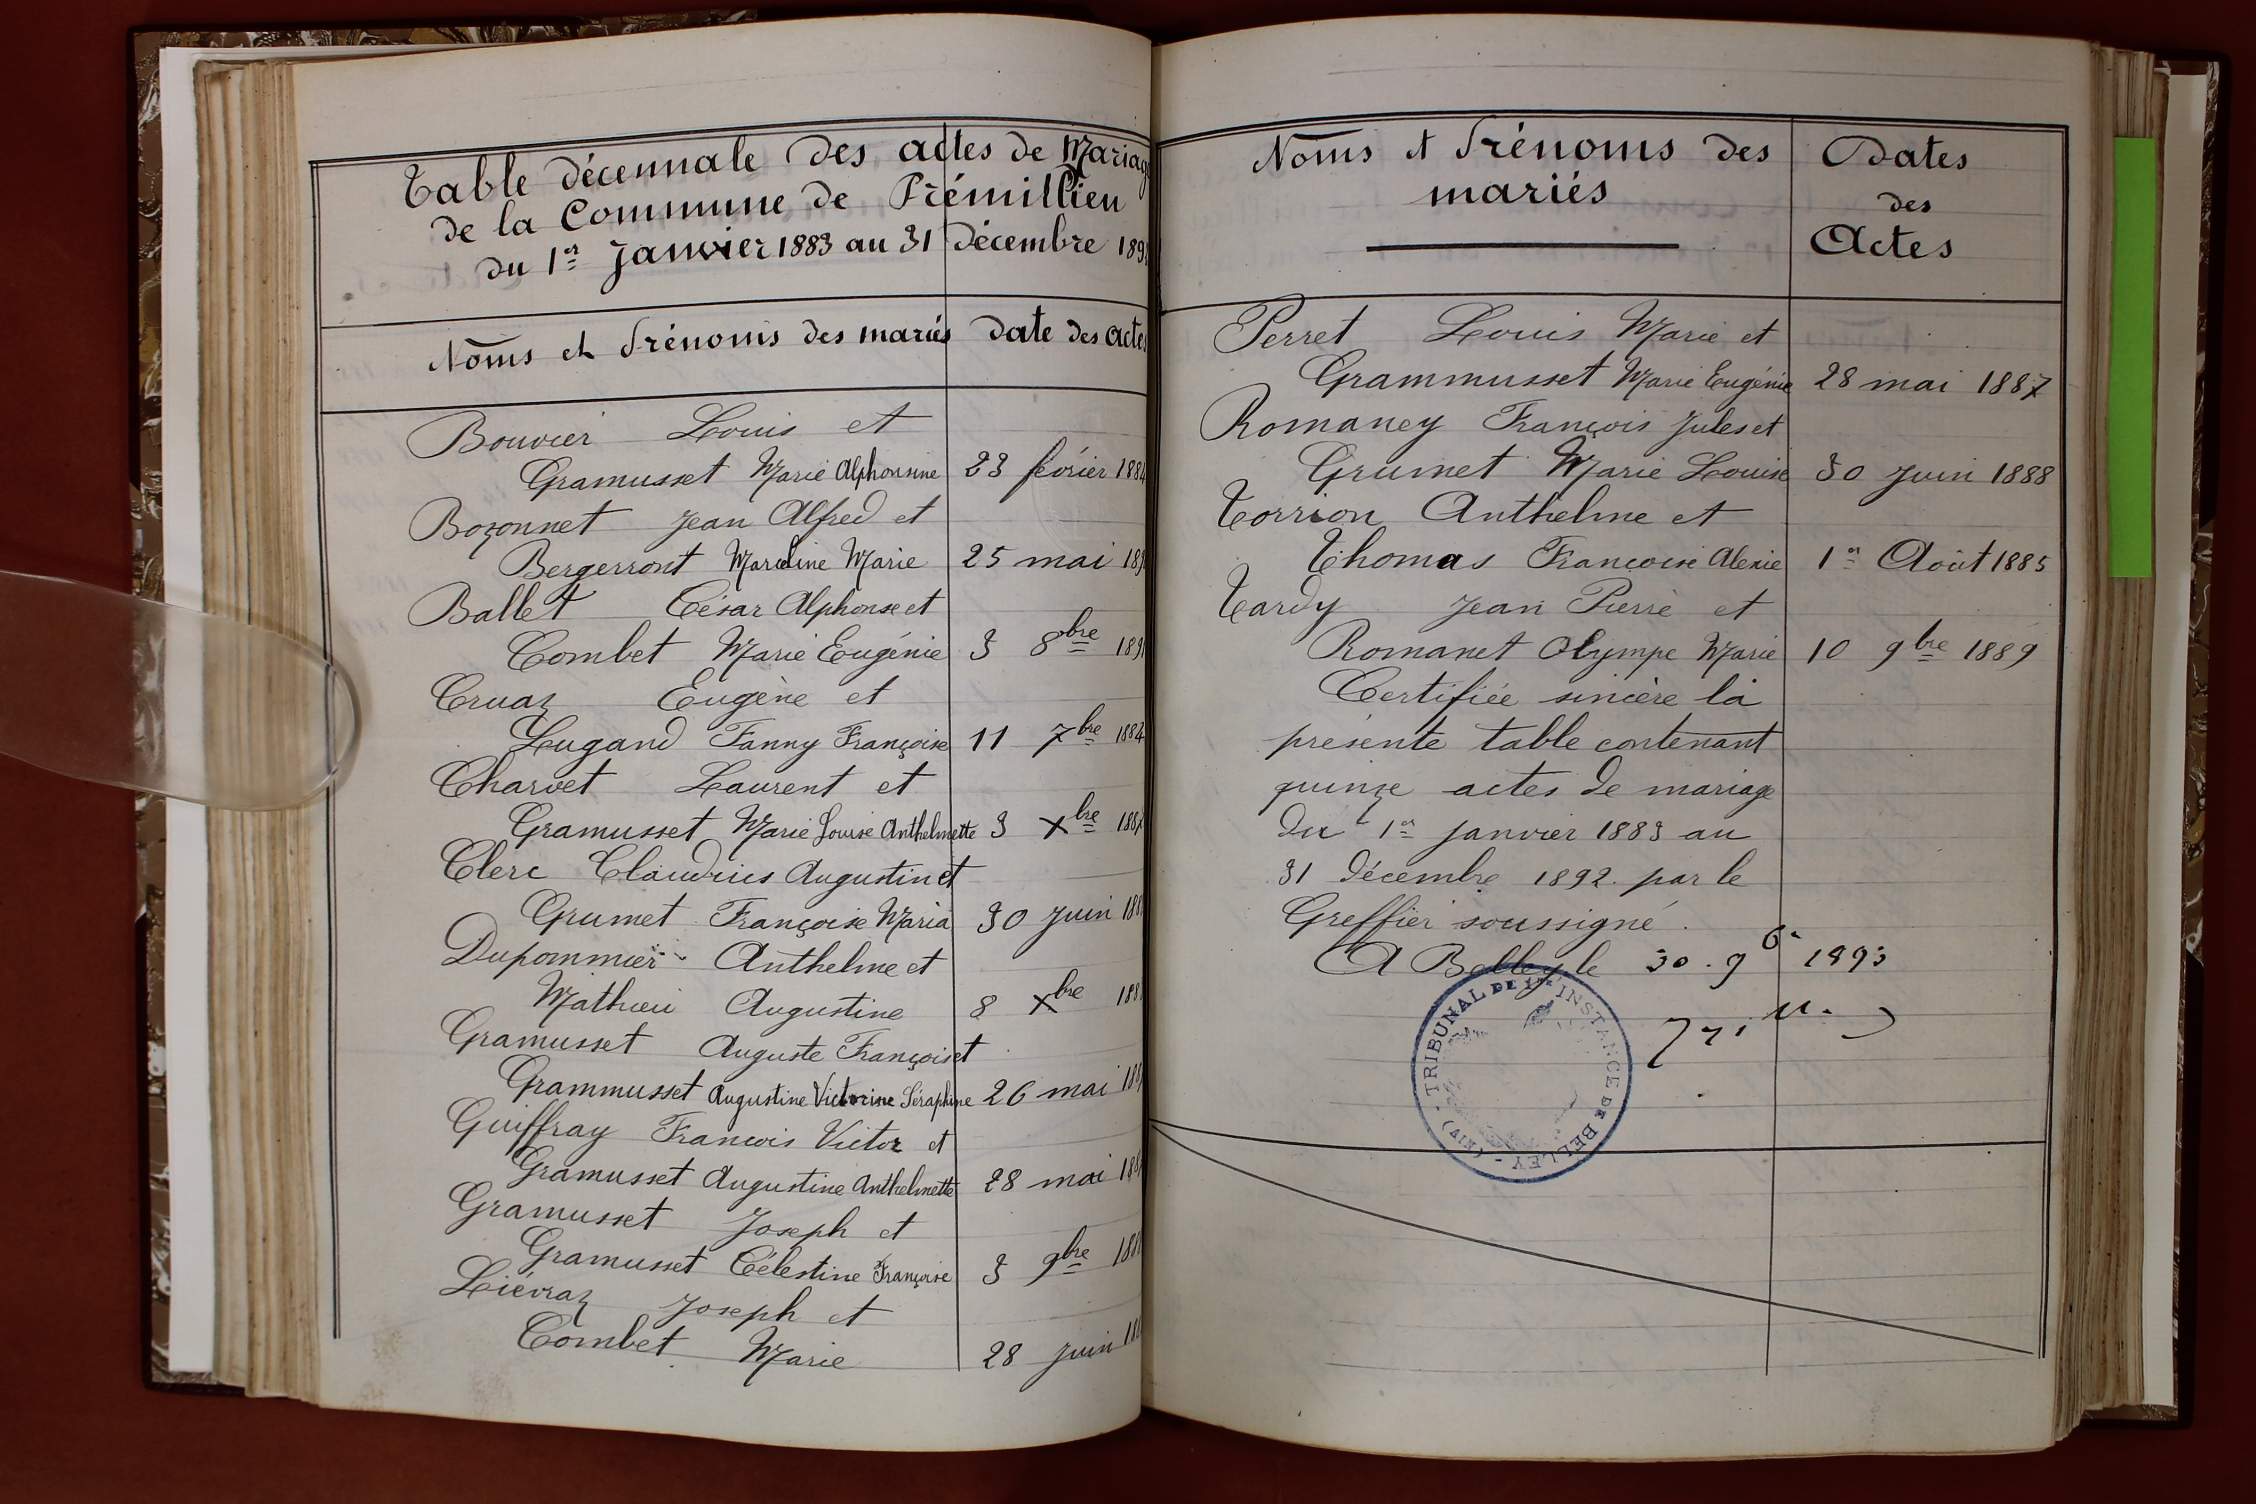 Table décennale des actes de Mariage
de la Commune de Prémillieu
du 1er Janvier 1883 au 31 décembre 189
Noms et Prénoms des mariés date des actes
Bouvier Louis et
Gramusset Marie Alphonsine 23 février 1884
Bozonnet Jean Alfred et
Bergerront Marceline Marie 25 mai 189
Ballet César Alphonse et
Combet Marie Eugénie 3 8bre 189
Cruaz Eugène et
Lugand Fanny Françoise 11 7bre 1884
Charvet Laurent et
Gramusset Marie Louise Anthelmette 3 Xbre 188
Clerc Claudius Augustin et
Grumet Françoise Maria 30 Juin 188
Dupommier Anthelme et
Mathieu Augustine 8 Xbre 188
Gramusset Auguste François et
Grammusset Augustine Victorine Séraphine 26 mai 188
Guiffray Francois Victor et
Gramusset Augustine Anthelmette 28 mai 188
Gramusset Joseph et
Gramusset Célestine Françoise 3 9bre 188
Liévraz Joseph et
Combet Marie 28 Juin 18
Noms et Prénoms des mariés
Dates des Actes
Perret Louis Marie et
Grammusset Marie Eugénie 28 mai 1887
Romaney François Jules et
Grumet Marie Louise 30 Juin 1888
Torrion Anthelme et
Thomas Francoise Alexie 1er Août 1885
Tardy Jean Pierre et
Romanet Olympe Marie 10 9bre 1889
Certifiée sincère la
présente table contenant
quinze actes de mariage
du 1er Janvier 1883 au
31 décembre 1892 par le
Greffier soussigné.
A Belley le 30. 9b. 1893
TRIBUNAL DE 1ère INSTANCE DE BELLEY - (AIN)